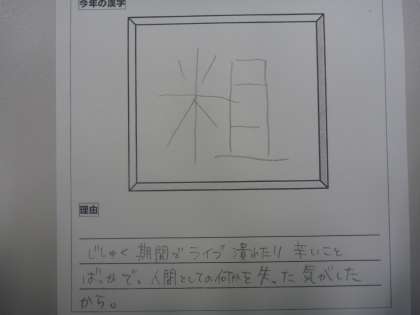 今年の漢字
粗
理由
じしゅく期間でライブ潰れたり辛いこと
ばっかで、人間としての何かを失った気がした
から。